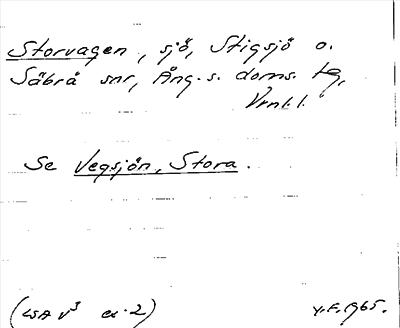 Storvagen, sjö, Stigsjö o.
Säbrå snr, Ång. s. doms. tg,
Vrnl. l.
Se Vegsjön, Stora.
(LSA V³ ex. 2)
V.F. 1965.